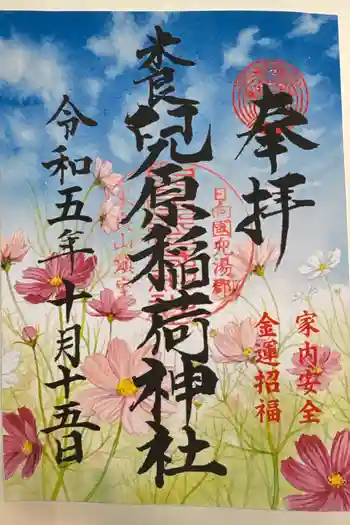 奉拝
家内安全
金運招福
日向國兒湯郡
養兒原稲荷神社
令和五年十月十五日